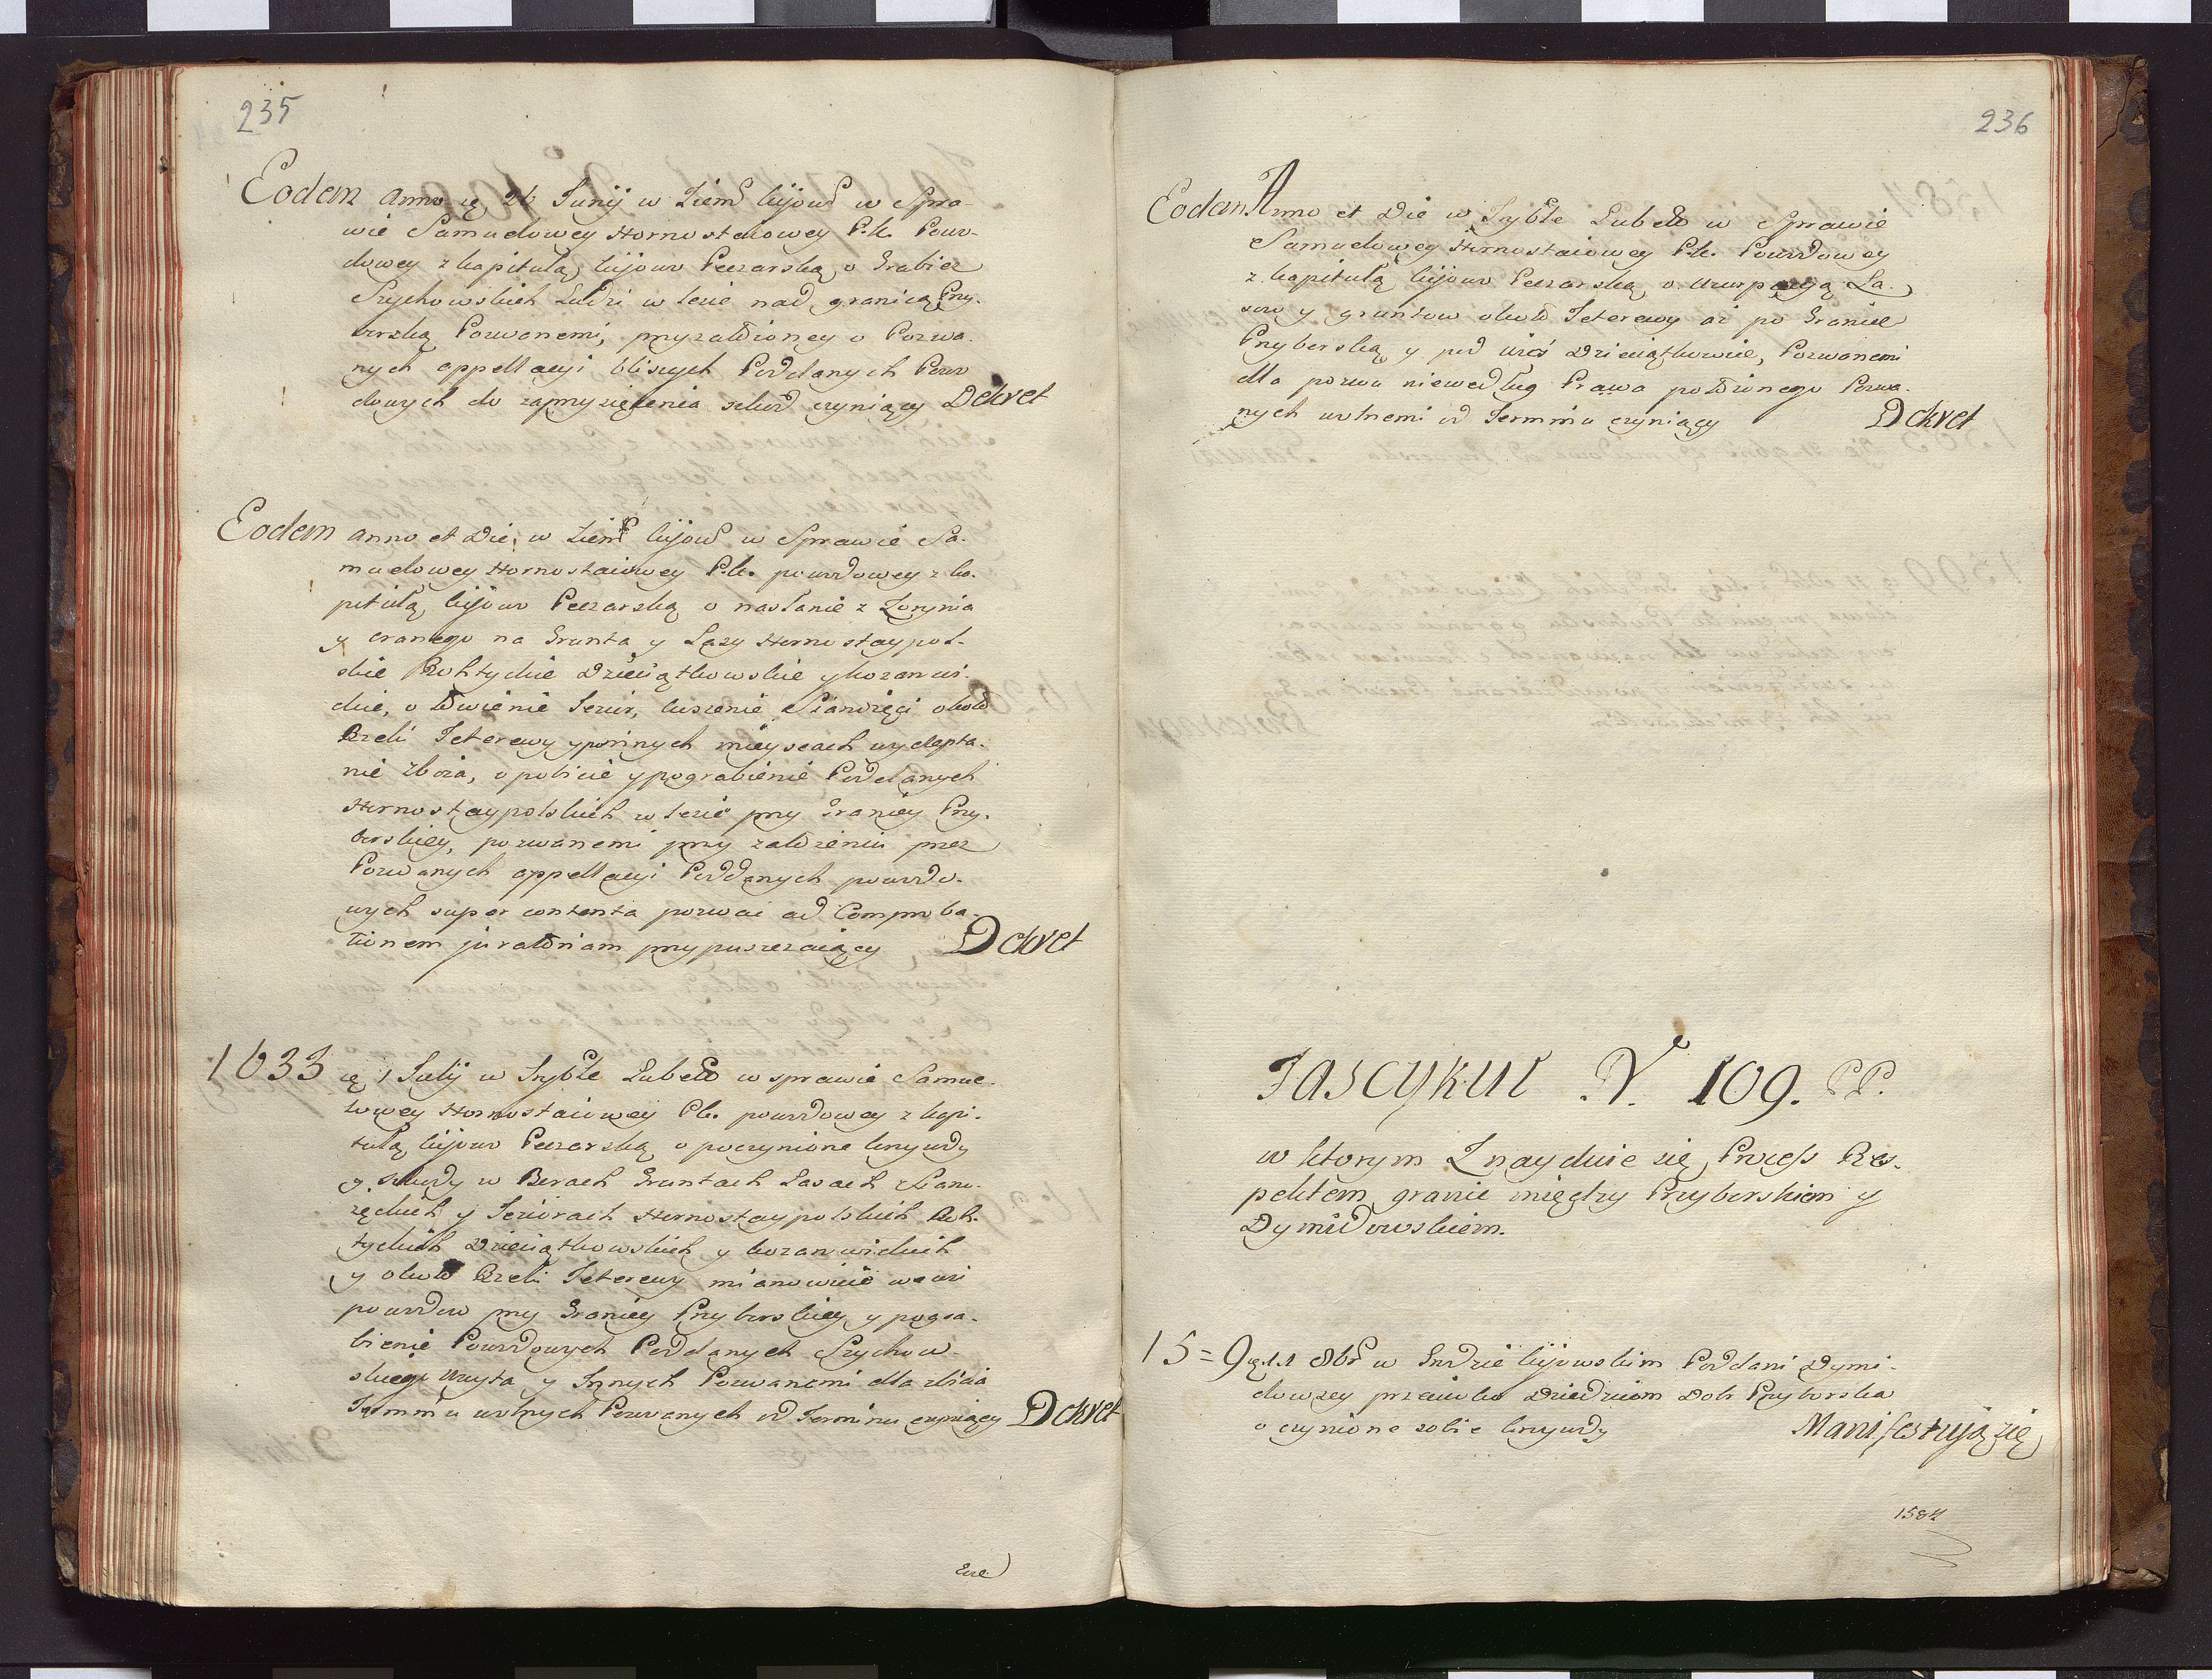 235
Eodem anno ię 26 Junij w Ziem kijow w Spra-
wie Samuelowey Hornostaiowey P.K. Pow-
dowey z kapitułą kijowo Peczarską o Grabież
Szychowskich Ludzi w lesie nad granicą Przy-
borską Pozwanemi, przy założoney o Pozwa-
nych appellacyi bliszych Poddanych Powo
dowych do zaprzysiężenia szkod czyniący Dekret
Eodem anno et Die, w Ziem kijow w Sprawie Sa-
muelowey Hornostaiowey P.K. powodowey z ka-
pitułą kijowo Peczarską o nasłanie z Zorynia
y oranego na Grunta y Lasy Hornostaypol-
skie Rohtyckie Dzieciątkowskie y kozarowi-
ckie, o łowienie Jezior, kuszenie Sianożęci około
Rzeki Teterewy y po innych mieyscach wydepta-
nie zboża, o pobicie y pograbienie Poddanych
Hornostaypolskich w lesie przy Granicy Przy-
borskiey, pozwanemi przy założeniu przez
Pozwanych appellacyi Poddanych powodo-
wych super contenta pozwu ad Comproba-
tionem juratoriam przypuszczaiący Dekret
1633 ię 1 Julij w Tryble Lubelo w sprawie Samue-
lowey Hornostaiowey P.K. powodowey z kapi-
tułą kijowo Peczarską o poczynione krzywdy
y szkody w Borach Gruntach Lasach Siano-
żęckich y Jeziorach Hornostaypolskich Roh-
tyckich Dzieciątkowskich y kozarowickich
y około Rzeki Teterewy mianowicie we wsi
powodow przy Granicy Przyborskiey y pogra-
bienie Powodowych Poddanych Szychow-
skiego Woyta y Innych Pozwanemi dla zbicia
Terminu wolnych Pozwanych od Terminu czyniący Dekret
236
Eodem Anno et Die w Tryble Lubelo w Sprawie
Samuelowey Hornostaiowey P.K. Powodowey
z kapitułą kijowo Peczarską o uzurpacyą La-
sow y gruntow około Teterewy aż po Granice
Przyborską y pod wieś Dzieciątkowice, Pozwanemi
dla pozwu niewedług Prawa położonego Pozwa-
nych wolnemi od Terminu czyniący Dekret
Fascykuł N. 109. PP.
w ktorym Znayduie się Process Res-
pektem granic między Przyborskiem y
Dymidowskiem.
15=9 ię 11 8br w Grodzie kijowskim Poddani Dymi-
dowscy przeciwko Dziedzicom Dobr Przyborska
o czynione sobie krzywdy Manifestują się
1584